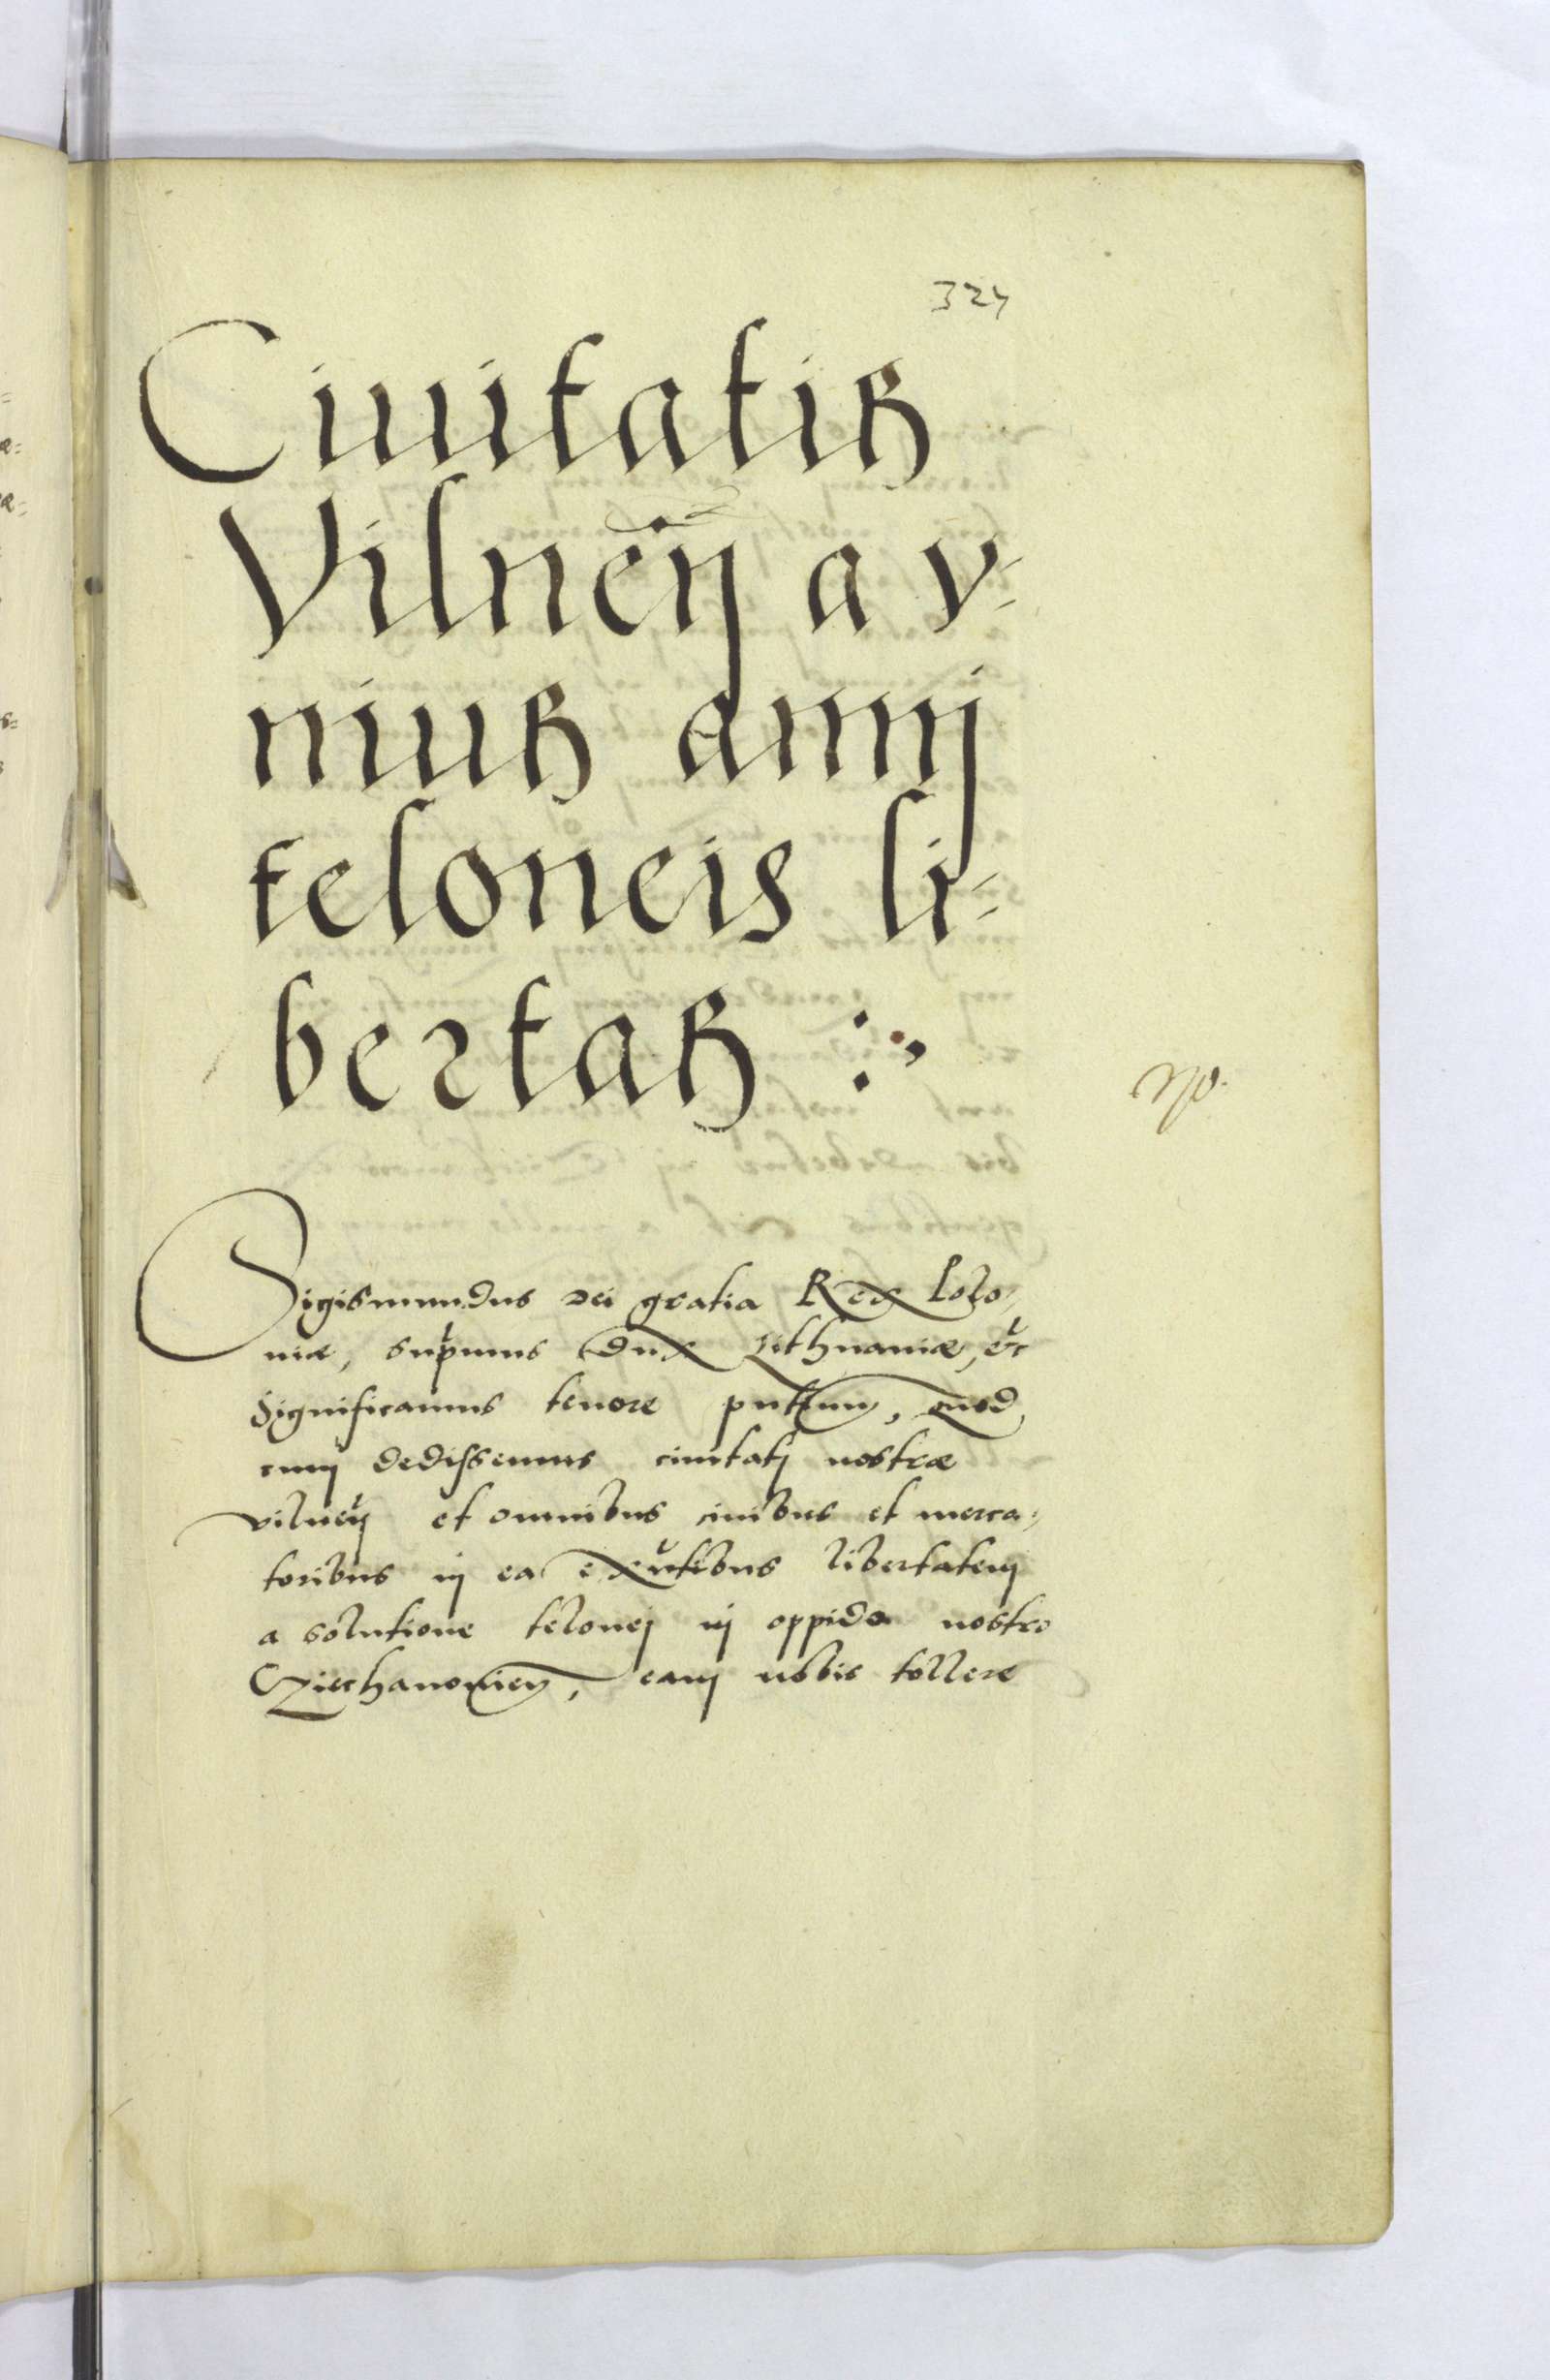 324
Ciuitatis
Vilneñ a v-
nius anni
teloneis li-
bertas
Sigismundus dei gratia Rex Polo-
niæ, supmus dux Lithuaniæ, etc
Significamus tenore pntium, quod
cum dedissemus ciuitati nostræ
vilneñ et omnibus ciuibus et merca-
toribus in ea exñtibus libertatem
a solutione telonei in oppido nostro
Cziechanowien, eam nobis tollere